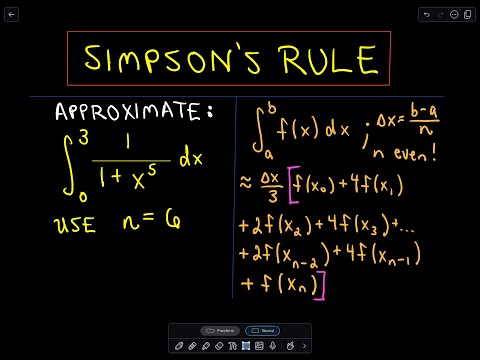 SIMPSON'S RULE
APPROXIMATE:
∫₀³ 1/(1+x⁵) dx
USE n=6
∫ₐᵇ f(x) dx ; Δx = (b-a)/n
n even!
≈ Δx/3 [f(x₀)+4f(x₁)
+2f(x₂)+4f(x₃)+...
+2f(xₙ₋₂)+4f(xₙ₋₁)
+f(xₙ)]
Freeform
Board